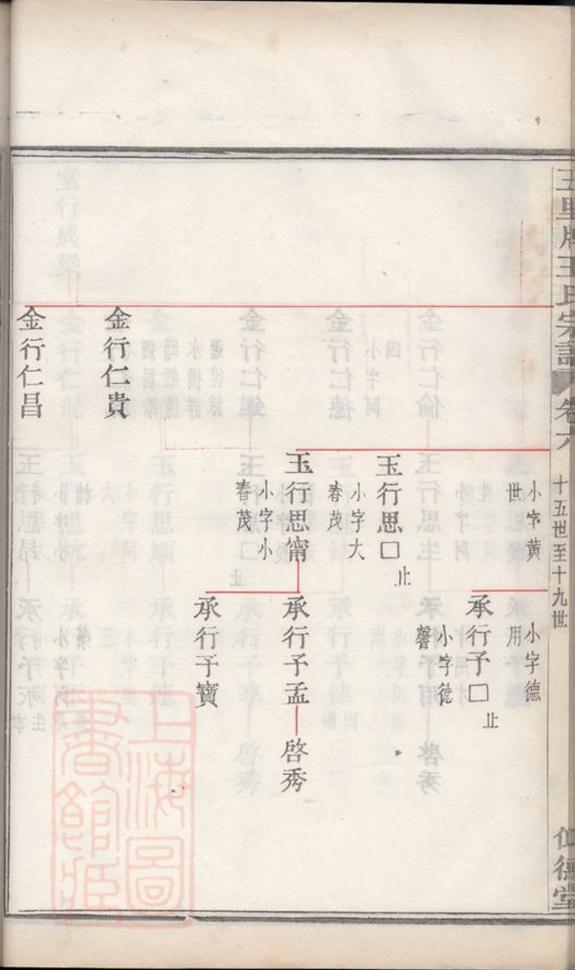 五里牌王氏宗譜
卷六
十五世至十九世
小字黃
世
小字德
用
承行子□
止
小字從
玉行思□
止
小字大
春茂
玉行思甯
小字小
春茂
承行子孟
啓秀
承行子寶
金行仁貴
金行仁昌
上海圖
書館藏